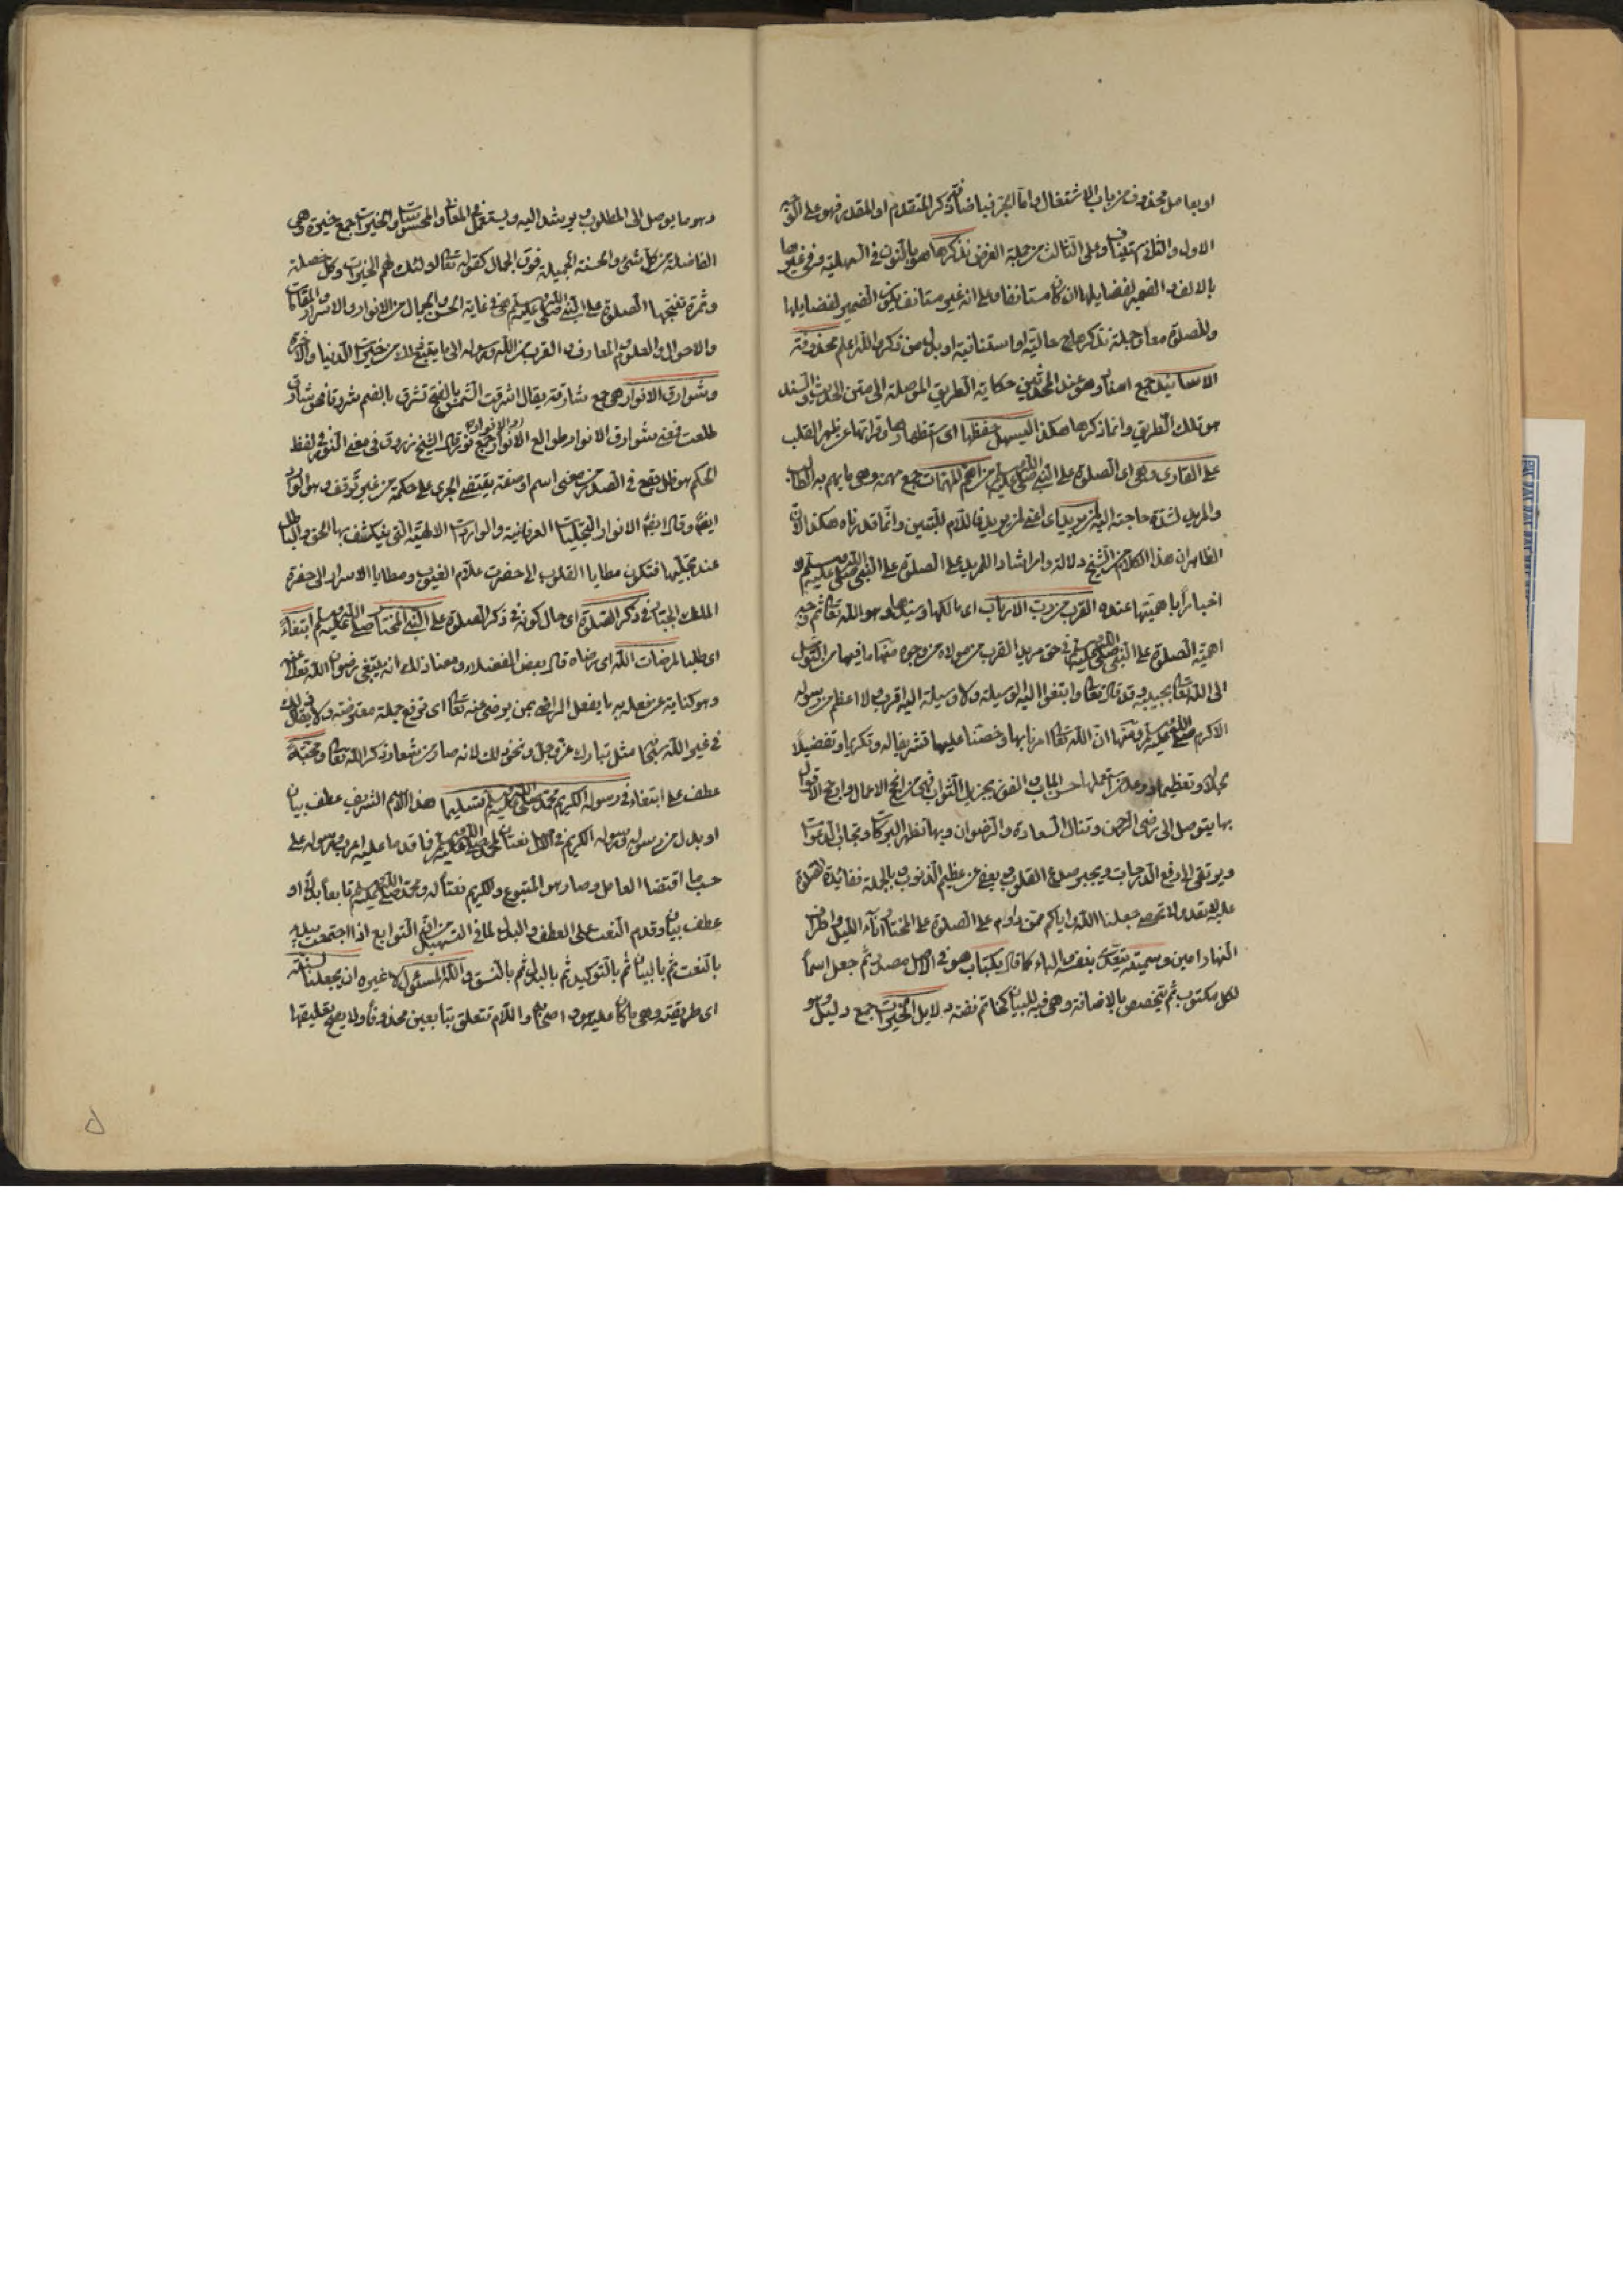 او بعامل محذوف من باب الاشتغال واما الجر فباضافة ذكر المتقدم او المقدر فهو على الوجه
الاول والثاني مستانف وعلى الثالث من جملة الغرض نذكرها هو بالنون في السهلية وفي غيرها
بالالف والضمير لفضايلها ان كان مستانفا وعلى انه غير مستانف يكون الضمير لفضايلها
والصلوة معا وجملة نذكرها حالية او استئنافية او بدل من نذكر والله اعلم محذوفة
الاسانيد جمع اسناد وهو عند المحدثين حكاية الطريق الموصلة الى متن الحديث والسند
هو تلك الطريق وانما ذكرها هكذا ليسهل حفظها اي استظهارها وقراتها عن ظهر القلب
على القارئ وهي اي الصلوة على النبي صلى الله عليه وسلم من اهم المهمات جمع مهمة وهي ما يهم به الطالب
والمريد لشدة حاجته اليه لمن يريد اي اعني لمن يريد فاللام للتبيين وانما قدرناه هكذا لان
الظاهر ان هذا الكلام من الشيخ دلالة وارشادا للمريد على الصلوة على النبي صلى الله عليه وسلم و
اخبارا باهميتها عنده القرب من رب الارباب اي مالكها وسيدها وهو الله تعالى ثم وجه
اهمية الصلوة على النبي صلى الله عليه وسلم في حق مريد القرب من مولاه من وجوه منها ما فيها من التوسل
الى الله تعالى بحبيبه وقد قال تعالى وابتغوا اليه الوسيلة ولا وسيلة اليه اقرب ولا اعظم من رسوله
الاكرم صلى الله عليه وسلم ومنها ان الله تعالى امرنا بها وحضنا عليها تشريفا له وتكريما وتفضيلا
بجلاله وتعظيما ووعد من استعملها حسن المآب والفوز بجزيل الثواب فهي من انجح الاعمال وارجح الاقوال
بها يتوصل الى رضى الرحمن وتنال السعادة والرضوان وبها تظهر البركات وتجاب الدعوات
ويرتقى الى ارفع الدرجات ويجبر صدع القلوب ويعفى عن عظيم الذنوب وبالجملة ففائدة الصلوة
عليه لا تعد ولا تحصى جعلنا الله واياكم ممن داوم على الصلوة على المختار آناء الليل واطراف
النهار امين وسميته يتعدى بنفسه وبالباء كما قال بكتاب هو في الاصل مصدر ثم جعل اسما
لكل مكتوب ثم تخصص بالاضافة وهي فيه للبيان كخاتم فضة دلايل الخيرات جمع دليل وهو
وهو ما يوصل الى المطلوب ويرشد اليه ويستعمل في المعاني والمحسوسات والخيرات جمع خيرة وهي
الفاضلة من كل شيء والحسنة الجميلة فوق الجمال كقوله تعالى اولئك لهم الخيرات وكل خصلة
وثمرة تنتجها الصلوة على النبي صلى الله عليه وسلم هي في غاية الحسن والجمال من الانوار والاسرار والمقامات
والاحوال والعلوم والمعارف والقرب من الله ورسوله الى ما يتبع ذلك من خيرات الدنيا والاخرة
وشوارق الانوار هي جمع شارقة يقال اشرقت الشمس بالفتح تشرق بالضم شروقا فهي شارق
طلعت فمعنى شوارق الانوار طوالع الانوار والانوار جمع نور قال الشيخ زروق في معنى النور في لفظ
الحكم هو ظل يقع في الصدر من معنى اسم او صفة يقتضي الجري على حكمه من غير توقف وهو الوارد
ايضا وقال ايضا الانوار التجليات العرفانية والواردات الالهية التي ينكشف بها الحق والباطل
عند تجليها فتكون مطايا القلوب الى حضرت علام الغيوب ومطايا الاسرار الى حضرة
الملك الجبار في ذكر الصلوة اي حال كونه في ذكر الصلوة على النبي المختار صلى الله عليه وسلم ابتغاء
اي طلبا لمرضات الله اي رضاه قال بعض الفضلاء ومعنا ذلك انه يبتغي رضوان الله تعالى عنه
وهو كناية عن فعله به ما يفعل الراضي بمن يرضى عنه تعالى اي ترفع جملة معترضة ولا يقال ذلك
في غير الله سبحانه مثل تبارك عز وجل ونحو ذلك لانه صار من شعار ذكر الله تعالى ومحبة
عطف على ابتغاء في رسوله الكريم محمد صلى الله عليه وسلم تسليما هذا الاسم الشريف عطف بيان
او بدل من رسوله ورسوله الكريم في الاصل نعتان لمحمد صلى الله عليه وسلم فلما قدما عليه اعرب رسوله على
حسب ما اقتضا العامل وصار هو المتبوع والكريم نعتا له ومحمد صلى الله عليه وسلم تابعا بدلا او
عطف بيان وقدم النعت على العطف والبدل لما في التسهيل من ان التوابع اذا اجتمعت يبدأ
بالنعت ثم بالبيان ثم بالتوكيد ثم بالبدل ثم بالنسق والله المسئول لا غيره ان يجعلنا لسنته
اي طريقته وهي ما كان عليه هو واصحابه واللام تتعلق بتابعين محذوفا ولا يصح تعليقها